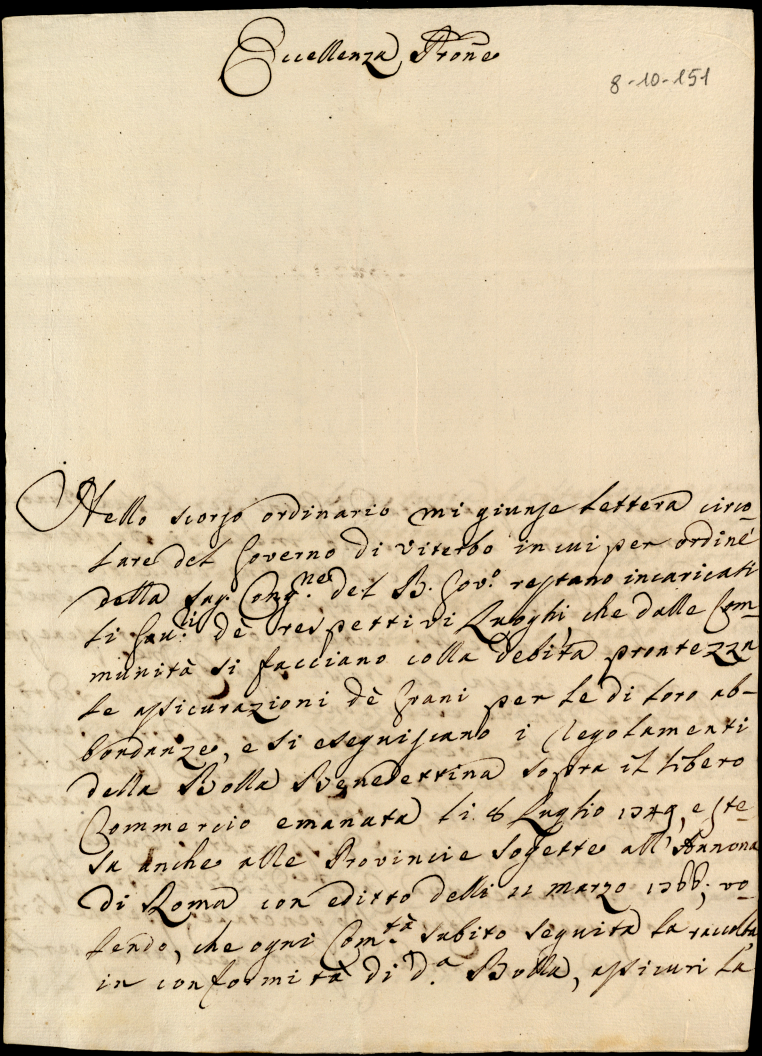 Eccellenza Prone
8-10-151
Nello scorso ordinario mi giunse Lettera circo-
lare del Governo di Viterbo in cui per ordine
della Sag. Cong.ne del B. Gov.o restano incaricati
li Gov.ri dè respettivi Luoghi che dalle Com-
munità si facciano colla debita prontezza
le assicurazioni dè Grani per le di loro ab-
bondanze, e si eseguiscano i Regolamenti
della Bolla Benedettina sopra il libero
Commercio emanata li 8 Luglio 1749, e ste-
sa anche alle Provincie sogette all'Annona
di Roma con editto delli 11 marzo 1766; vo-
lendo, che ogni Com.tà subito seguita la raccolta
in conformità di d.a Bolla, assicuri la